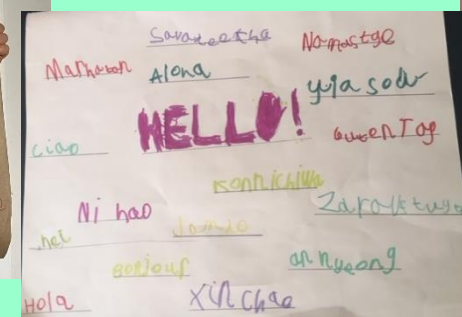 Savaseetha
Namastge
Marhabah
Alona
yiasodu
HELLO!
ciao
GutenTag
konnichiwa
Ni hao
Zaravstuyo
Jamio
Bonjour
annyeong
Hola
Xin Chao